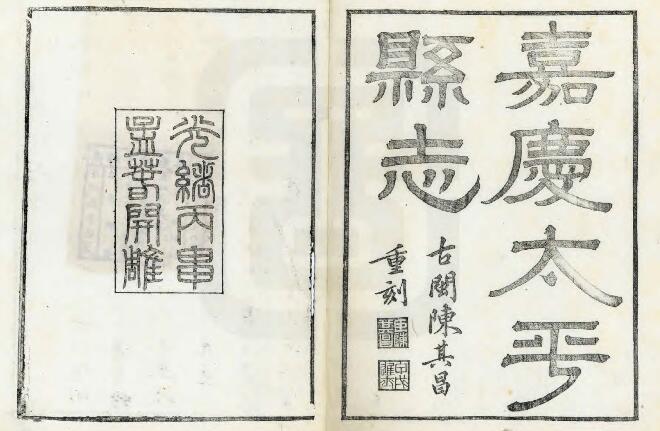 嘉慶太平
縣志
古閩陳其昌
重刻
光緒丙申
孟春開雕